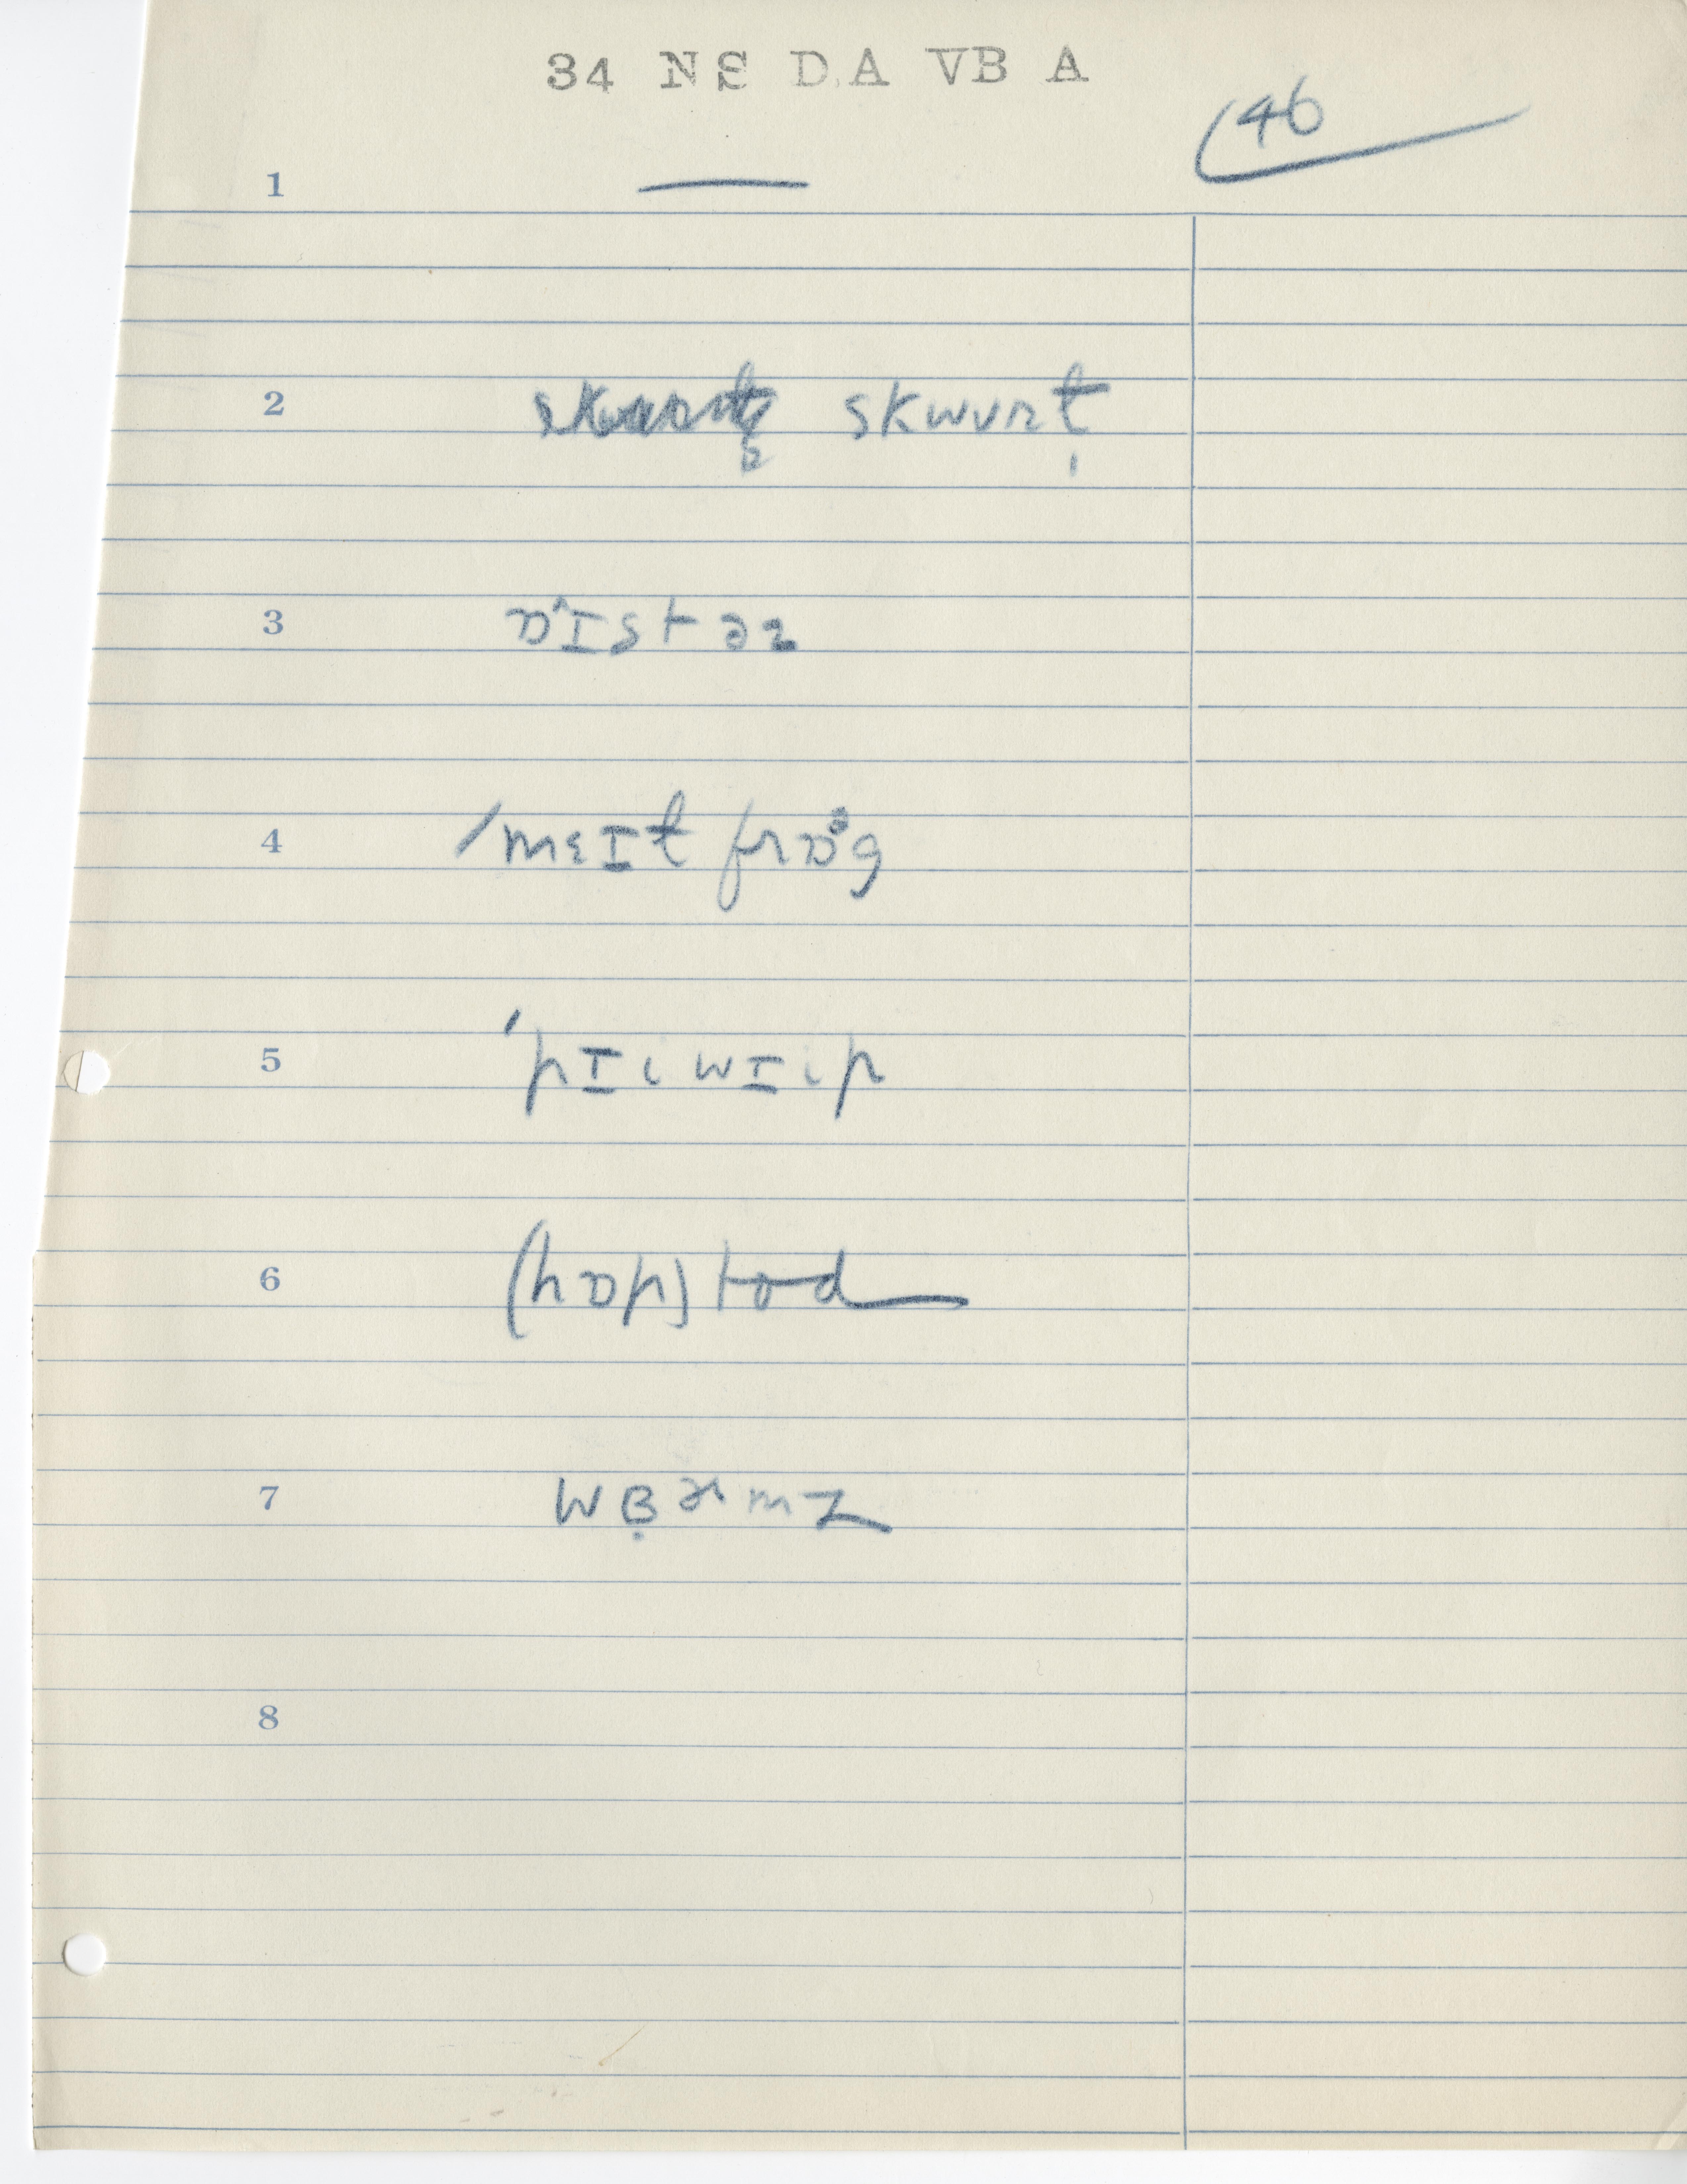 34 NS DA VB A
46
1 —
2 skwɒrt̩ skwʊrt̩
3 ɒˆɪstəz
4 /mɛɪt frɒᵊg
5 'pɪıwɪıp
6 (hɒp) tod
7 wɞ̣ɚmz
8